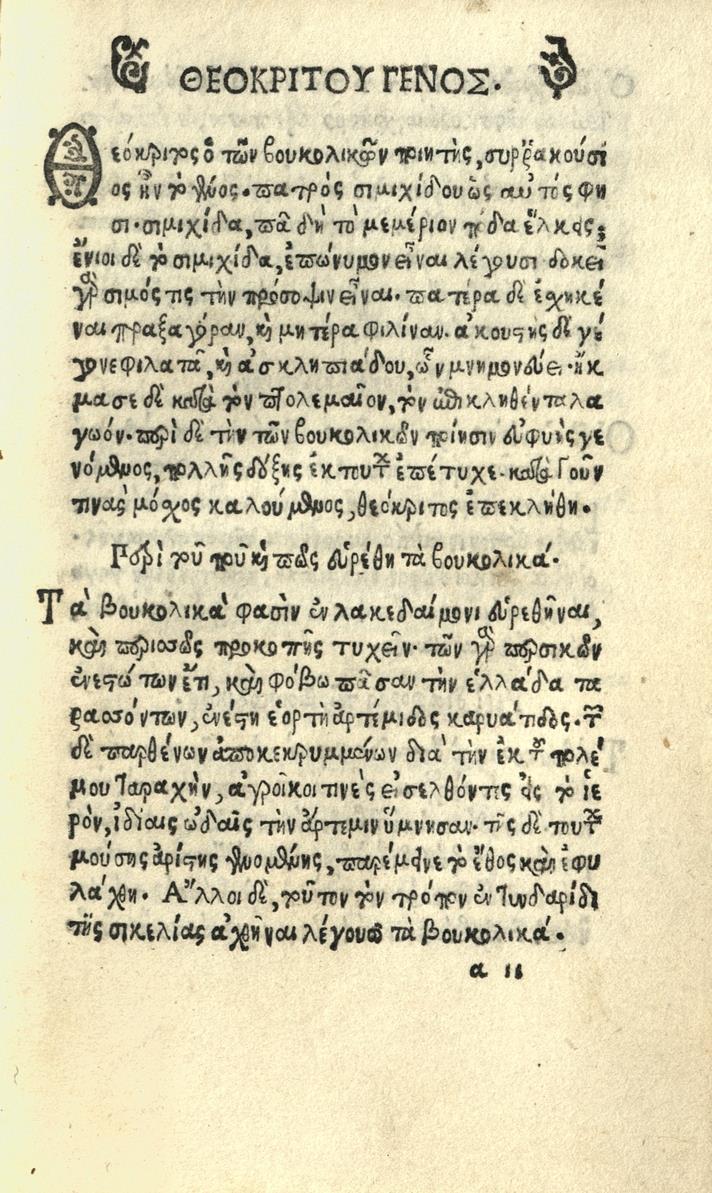 ΘΕΟΚΡΙΤΟΥ ΓΕΝΟΣ.
Θεόκριτος ὁ τῶν βουκολικῶν ποιητὴς, συρρακούσι
ος ἦν τὸ γένος. πατρὸς σιμιχίδου ὡς αὐτός φη
σι. σιμιχίδα, πᾶ δὴ τὸ μεμέριον πόδα ἕλκεις;
ἔνιοι δὲ τὸ σιμιχίδα, ἐπώνυμον εἶναι λέγουσι δοκεῖ
γὰρ σιμός τις τὴν πρόσοψιν εἶναι. πατέρα δὲ ἐχηκέ
ναι πραξαγόραν, καὶ μητέρα φιλίναν. ἀκουστὴς δὲ γέ
γονε φιλατᾶ, καὶ ἀσκληπιάδου, ὧν μνημονεύει. ἤκ
μασε δὲ κατὰ τὸν πτολεμαῖον, τὸν ἐπικληθέντα λα
γωόν. περὶ δὲ τὴν τῶν βουκολικῶν ποίησιν εὐφυὴς γε
νόμενος, πολλῆς δόξης ἐκ τούτων ἐπέτυχε. κατὰ γοῦν
τινας μόσχος καλούμενος, θεόκριτος ἐπεκλήθη.
Περὶ τοῦ ποῦ καὶ πῶς εὑρέθη τὰ βουκολικά.
Τὰ βουκολικά φασὶν ἐν λακεδαίμονι εὑρεθῆναι,
καὶ περισσῶς προκοπῆς τυχεῖν. τῶν γὰρ περσικῶν
ἐνεστώτων ἔτι, καὶ φόβῳ πᾶσαν τὴν ἑλλάδα τα
ρασσόντων, ἐνέστη ἑορτὴ ἀρτέμιδος καρυάτιδος. τῶν
δὲ παρθένων ἀποκεκρυμμένων διὰ τὴν ἐκ τοῦ πολέ
μου ταραχὴν, ἀγροῖκοι τινὲς εἰσελθόντες εἰς τὸ ἱε
ρὸν, ἰδίαις ᾠδαῖς τὴν ἄρτεμιν ὕμνησαν. τῆς δὲ τούτων
μούσης ἀρίστης γενομένης, παρέμεινε τὸ ἔθος καὶ ἐφυ
λάχθη. Ἄλλοι δὲ, τοῦτον τὸν τρόπον ἐν τυνδαρίδι
τῆς σικελίας ἀχθῆναι λέγουσι τὰ βουκολικά.
a ii